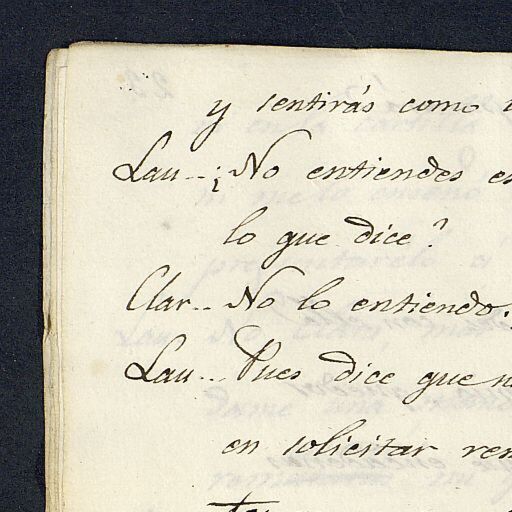 y sentirás como
Lau.. ¿No entiendes
lo que dice?
Clar.. No lo entiendo.
Lau.. Pues dice que
en solicitar